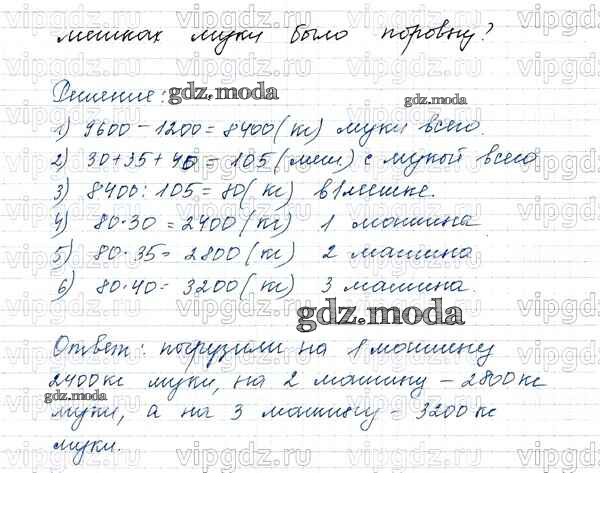 мешках муки было поровну?
Решение:
1) 9600 - 1200 = 8400 (кг) муки всего.
2) 30 + 35 + 40 = 105 (меш) с мукой всего
3) 8400 : 105 = 80 (кг) в 1 мешке.
4) 80 · 30 = 2400 (кг) 1 машина
5) 80 · 35 = 2800 (кг) 2 машина
6) 80 · 40 = 3200 (кг) 3 машина.
Ответ: погрузили на 1 машину
2400 кг муки, на 2 машину - 2800 кг
муки, а на 3 машину - 3200 кг
муки.
gdz.moda
gdz.moda
gdz.moda
gdz.moda
vipgdz.ru